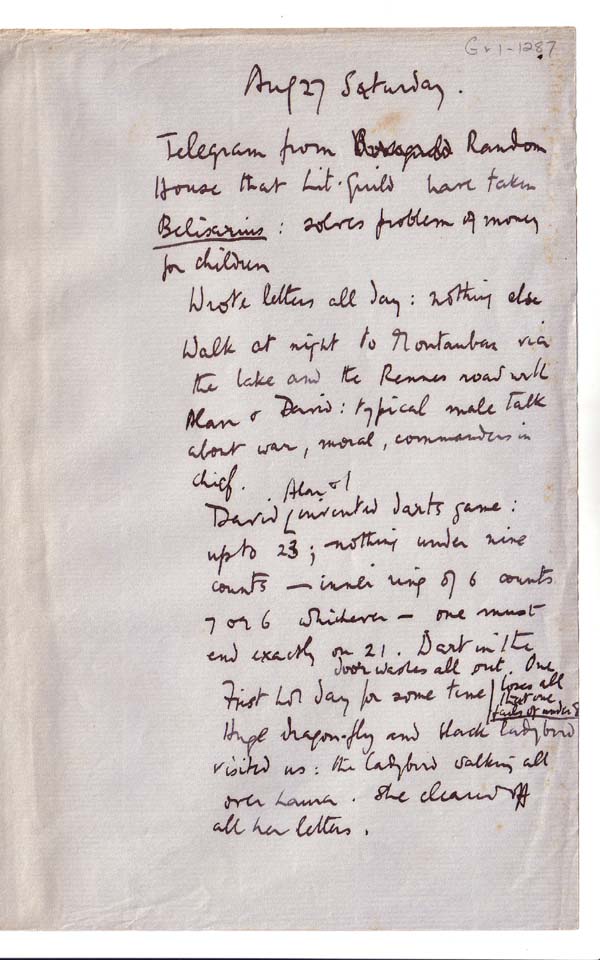 Gr1-1287
Aug 27 Saturday.
Telegram from Random
House that Lit. Guild have taken
Belisarius: solves problem of money
for children
Wrote letters all day: nothing else
Walk at night to Montauban via
the lake and the Rennes road with
Alan & David: typical male talk
about war, moral, commanders in
chief.
Alan & I
David invented darts game:
up to 23; nothing under nine
counts – inner ring of 6 counts
7 or 6 whichever – one must
end exactly on 21. Dart in the
door washes all out. One
loses all
that one
First hot day for some time
Huge dragon-fly and black ladybird
visited us: the ladybird walking all
over Laura. She cleared off
all her letters.